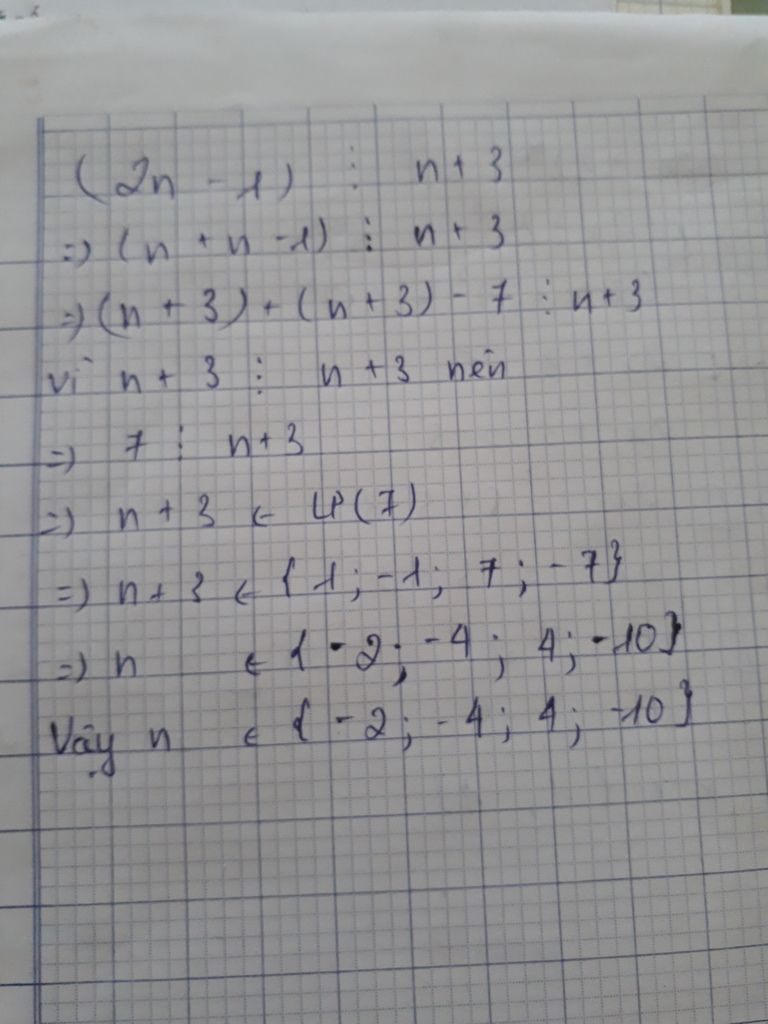 (2n - 1) ⋮ n + 3
=> (n + n - 1) ⋮ n + 3
=> (n + 3) + (n + 3) - 7 ⋮ n + 3
vì n + 3 ⋮ n + 3 nên
=> 7 ⋮ n + 3
=> n + 3 ∈ Ư(7)
=> n + 3 ∈ {1; -1; 7; -7}
=> n ∈ {-2; -4; 4; -10}
Vậy n ∈ {-2; -4; 4; -10}